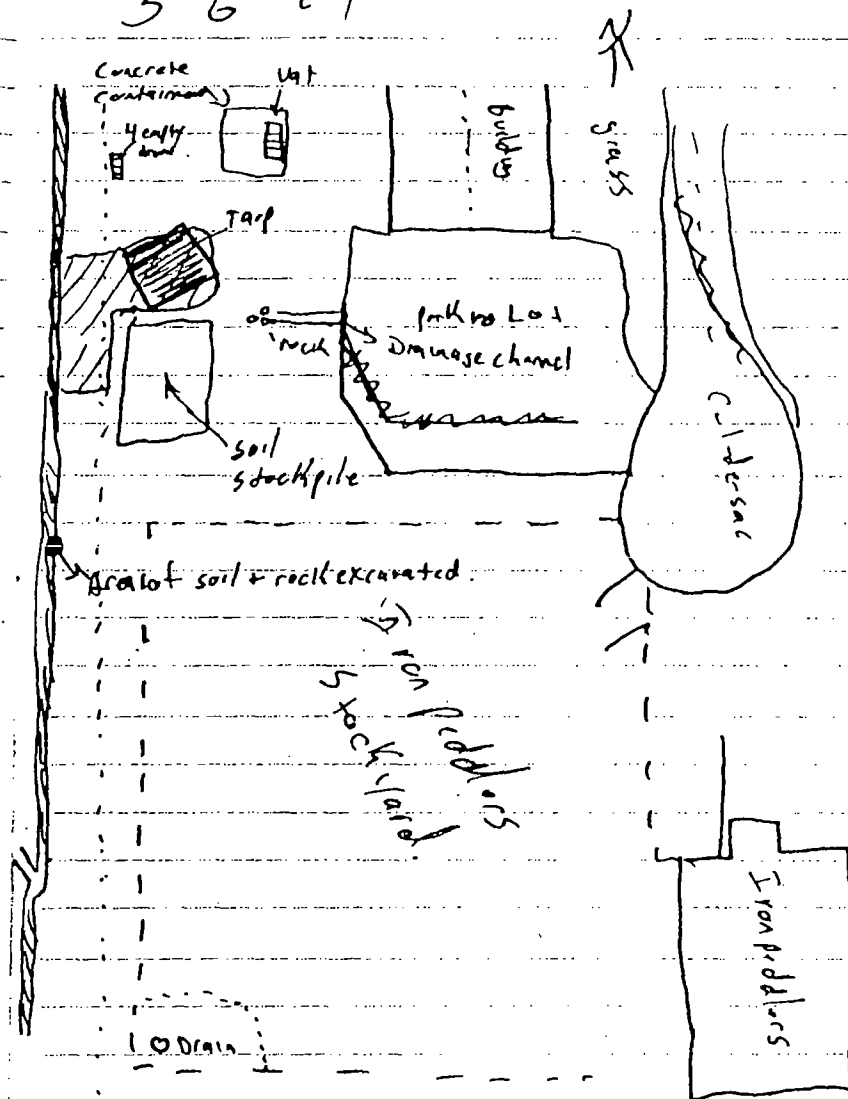 Concrete
Containment
Vat
4 empty
drums
building
grass
Tarp
Parking Lot
Drainage channel
rock
Cul-de-sac
soil
stockpile
Area of soil + rock excavated.
Iron peddlers
Stock yard
Iron peddlers
Drain